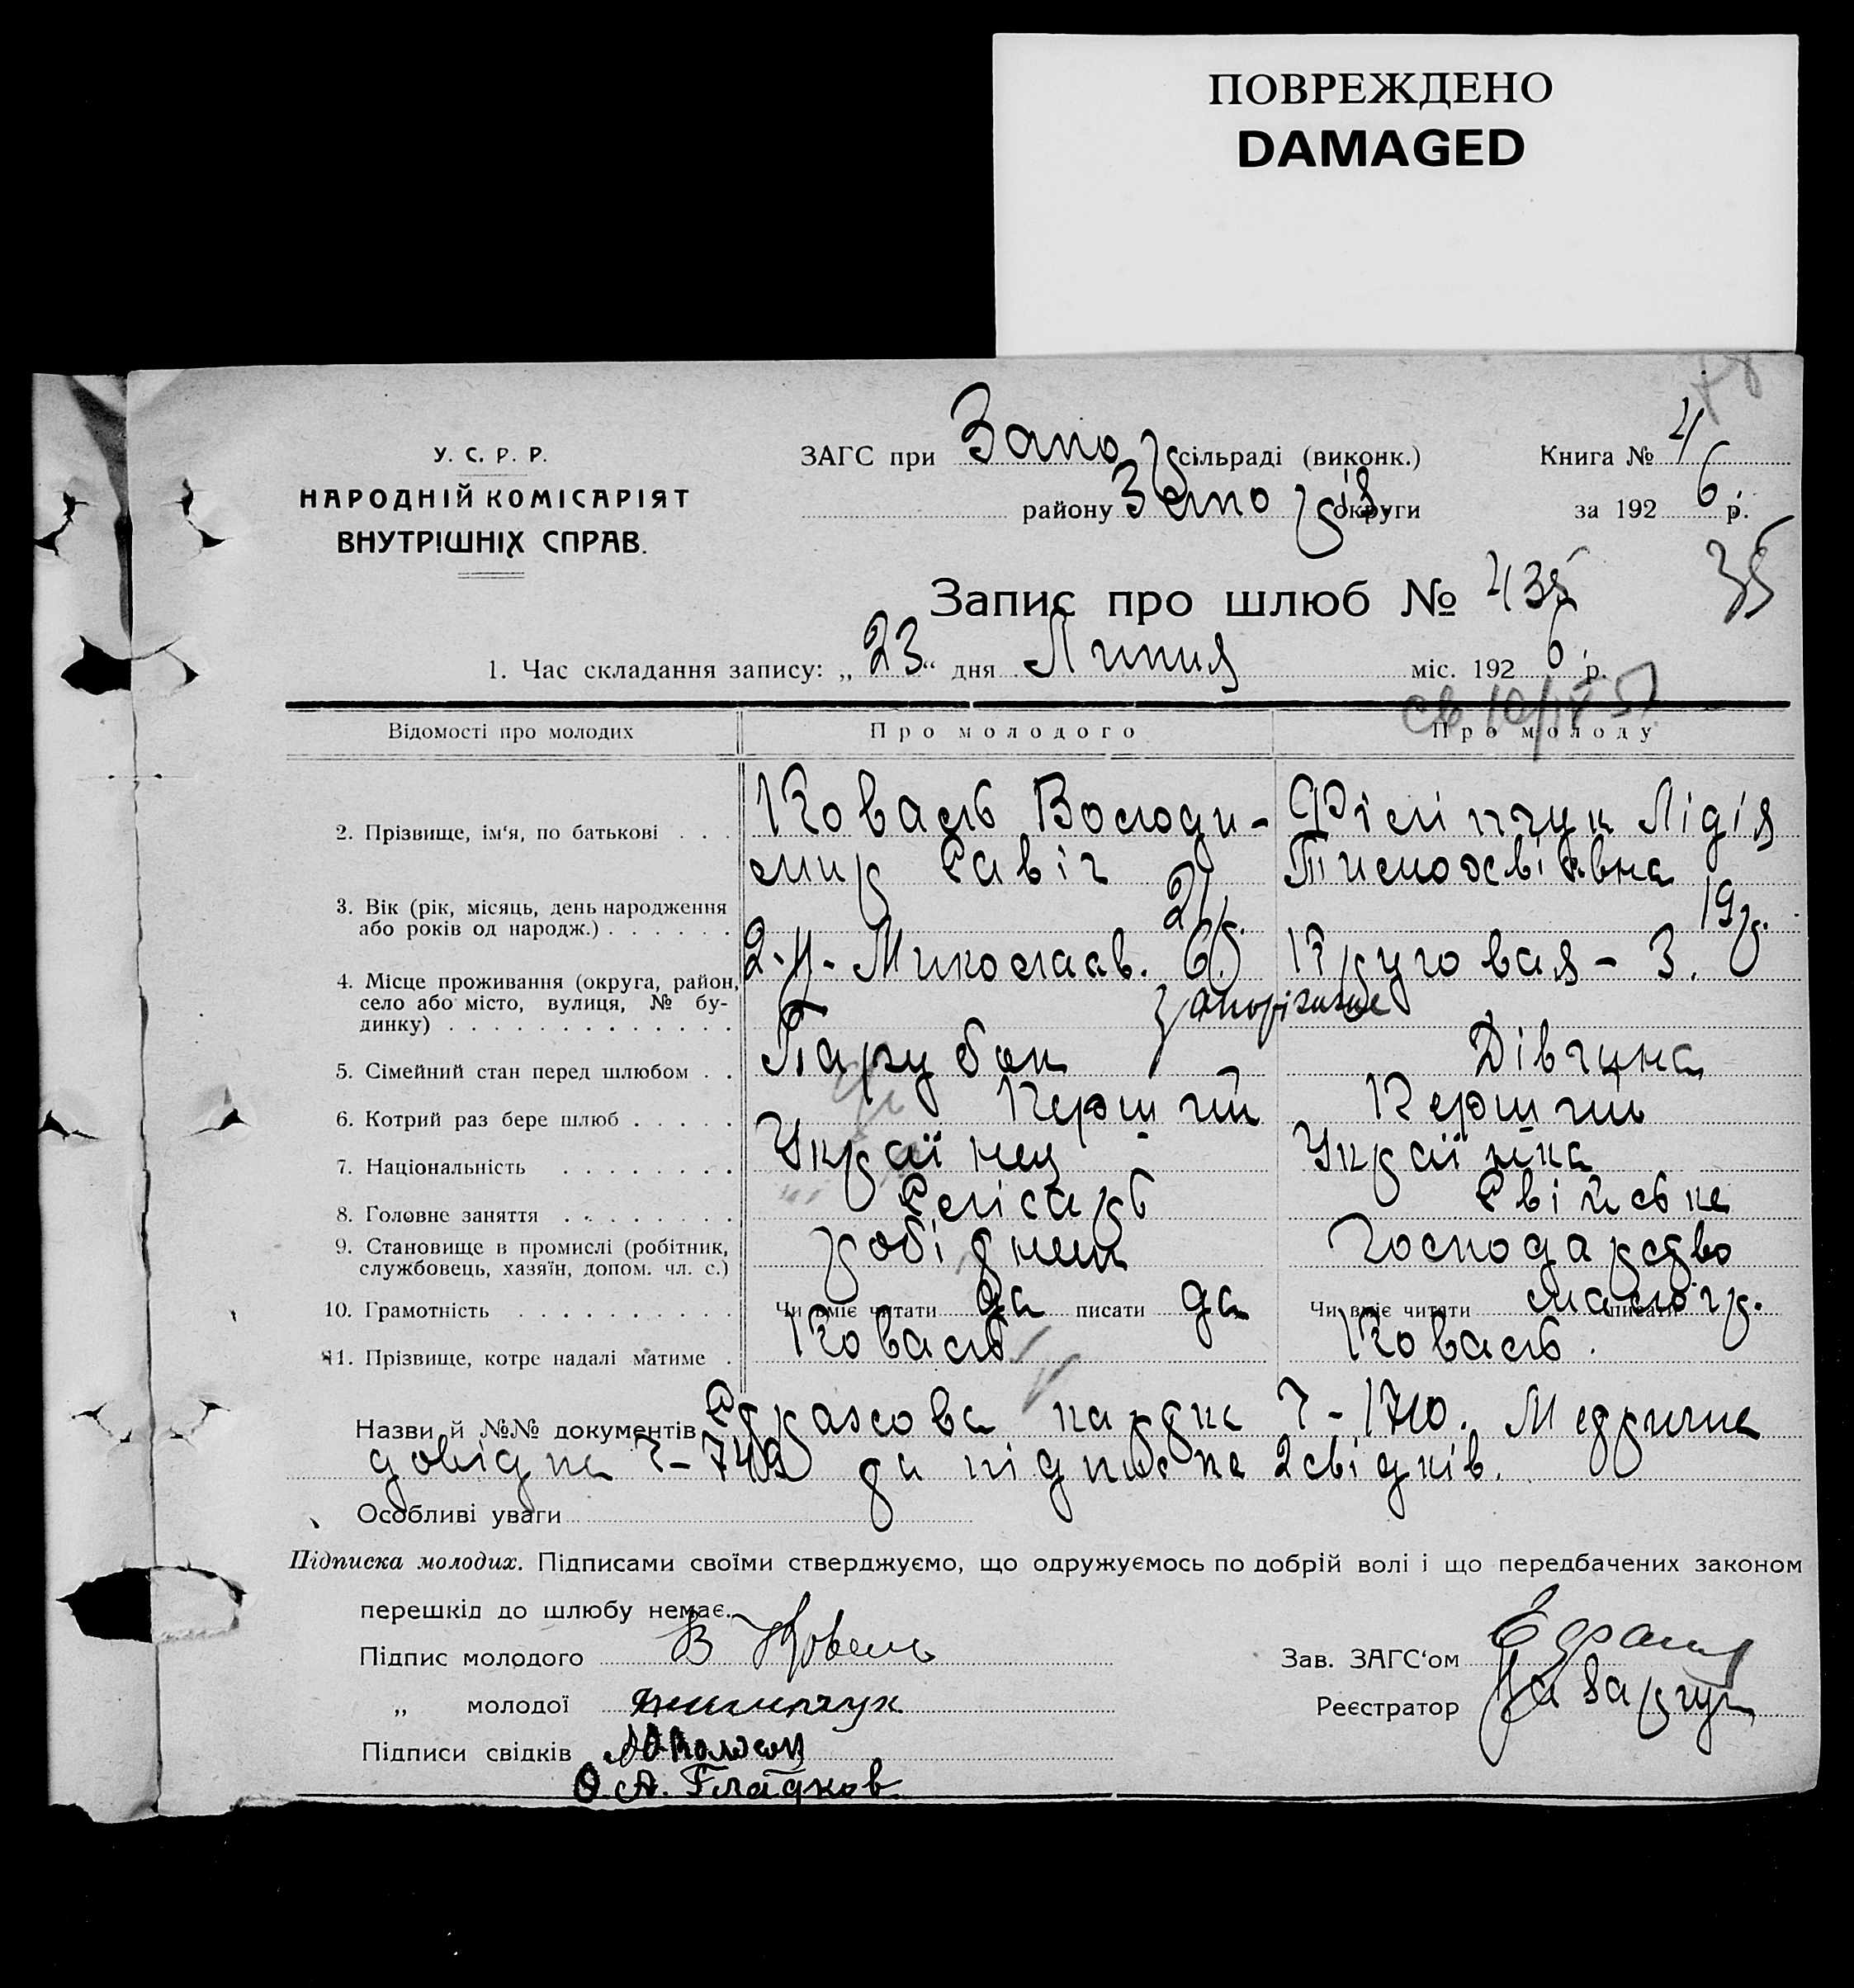 ПОВРЕЖДЕНО
DAMAGED
У. С. Р. Р.
НАРОДНІЙ КОМІСАРІЯТ
ВНУТРІШНІХ СПРАВ.
ЗАГС при Запор сільраді (виконк.)
району Запоріз округи
Книга № 4
за 1926 р.
Запис про шлюб № 435
35
1. Час складання запису: „23“ дня Липня міс. 1926 р.
Відомості про молодих Про молодого Про молоду
2. Прізвище, ім'я, по батькові . . . Коваль Володи- Філіпчук Лідія
мир Савіч Тимофвіївна
3. Вік (рік, місяць, день народження
або років од народж.) . . . . . . 21р. 19р.
4. Місце проживання (округа, район, 2-й- Миколаав. 6 Кругова я - 3.
село або місто, вулиця, № бу-
динку) . . . . . . . . . . . . . Запоріжжє
5. Сімейний стан перед шлюбом . . Парубок Дівчина
6. Котрий раз бере шлюб . . . . . Перший Перший
7. Національність . . . . . . . . Українец Українка
8. Головне заняття . . . . . . . . Слісарь Свійське
9. Становище в промислі (робітник,
службовець, хазяїн, допом. чл. с.) робітнек Господарство
10. Грамотність . . . . . . . . . . Чи вміє читати да писати да Чи вміє читати писати малогр.
11. Прізвище, котре надалі матиме . Коваль Коваль.
Назви й №№ документів Стразсова картка Ч-1710. Медрична
довідка Ч-749 та підписка 2 свідків.
Особливі уваги
Підписка молодих. Підписами своїми стверджуємо, що одружуємось по добрій волі і що передбачених законом
перешкід до шлюбу немає.
Підпис молодого В Коваль
„ молодої
Підписи свідків
О. А. Гладков
Зав. ЗАГС'ом
Реєстратор